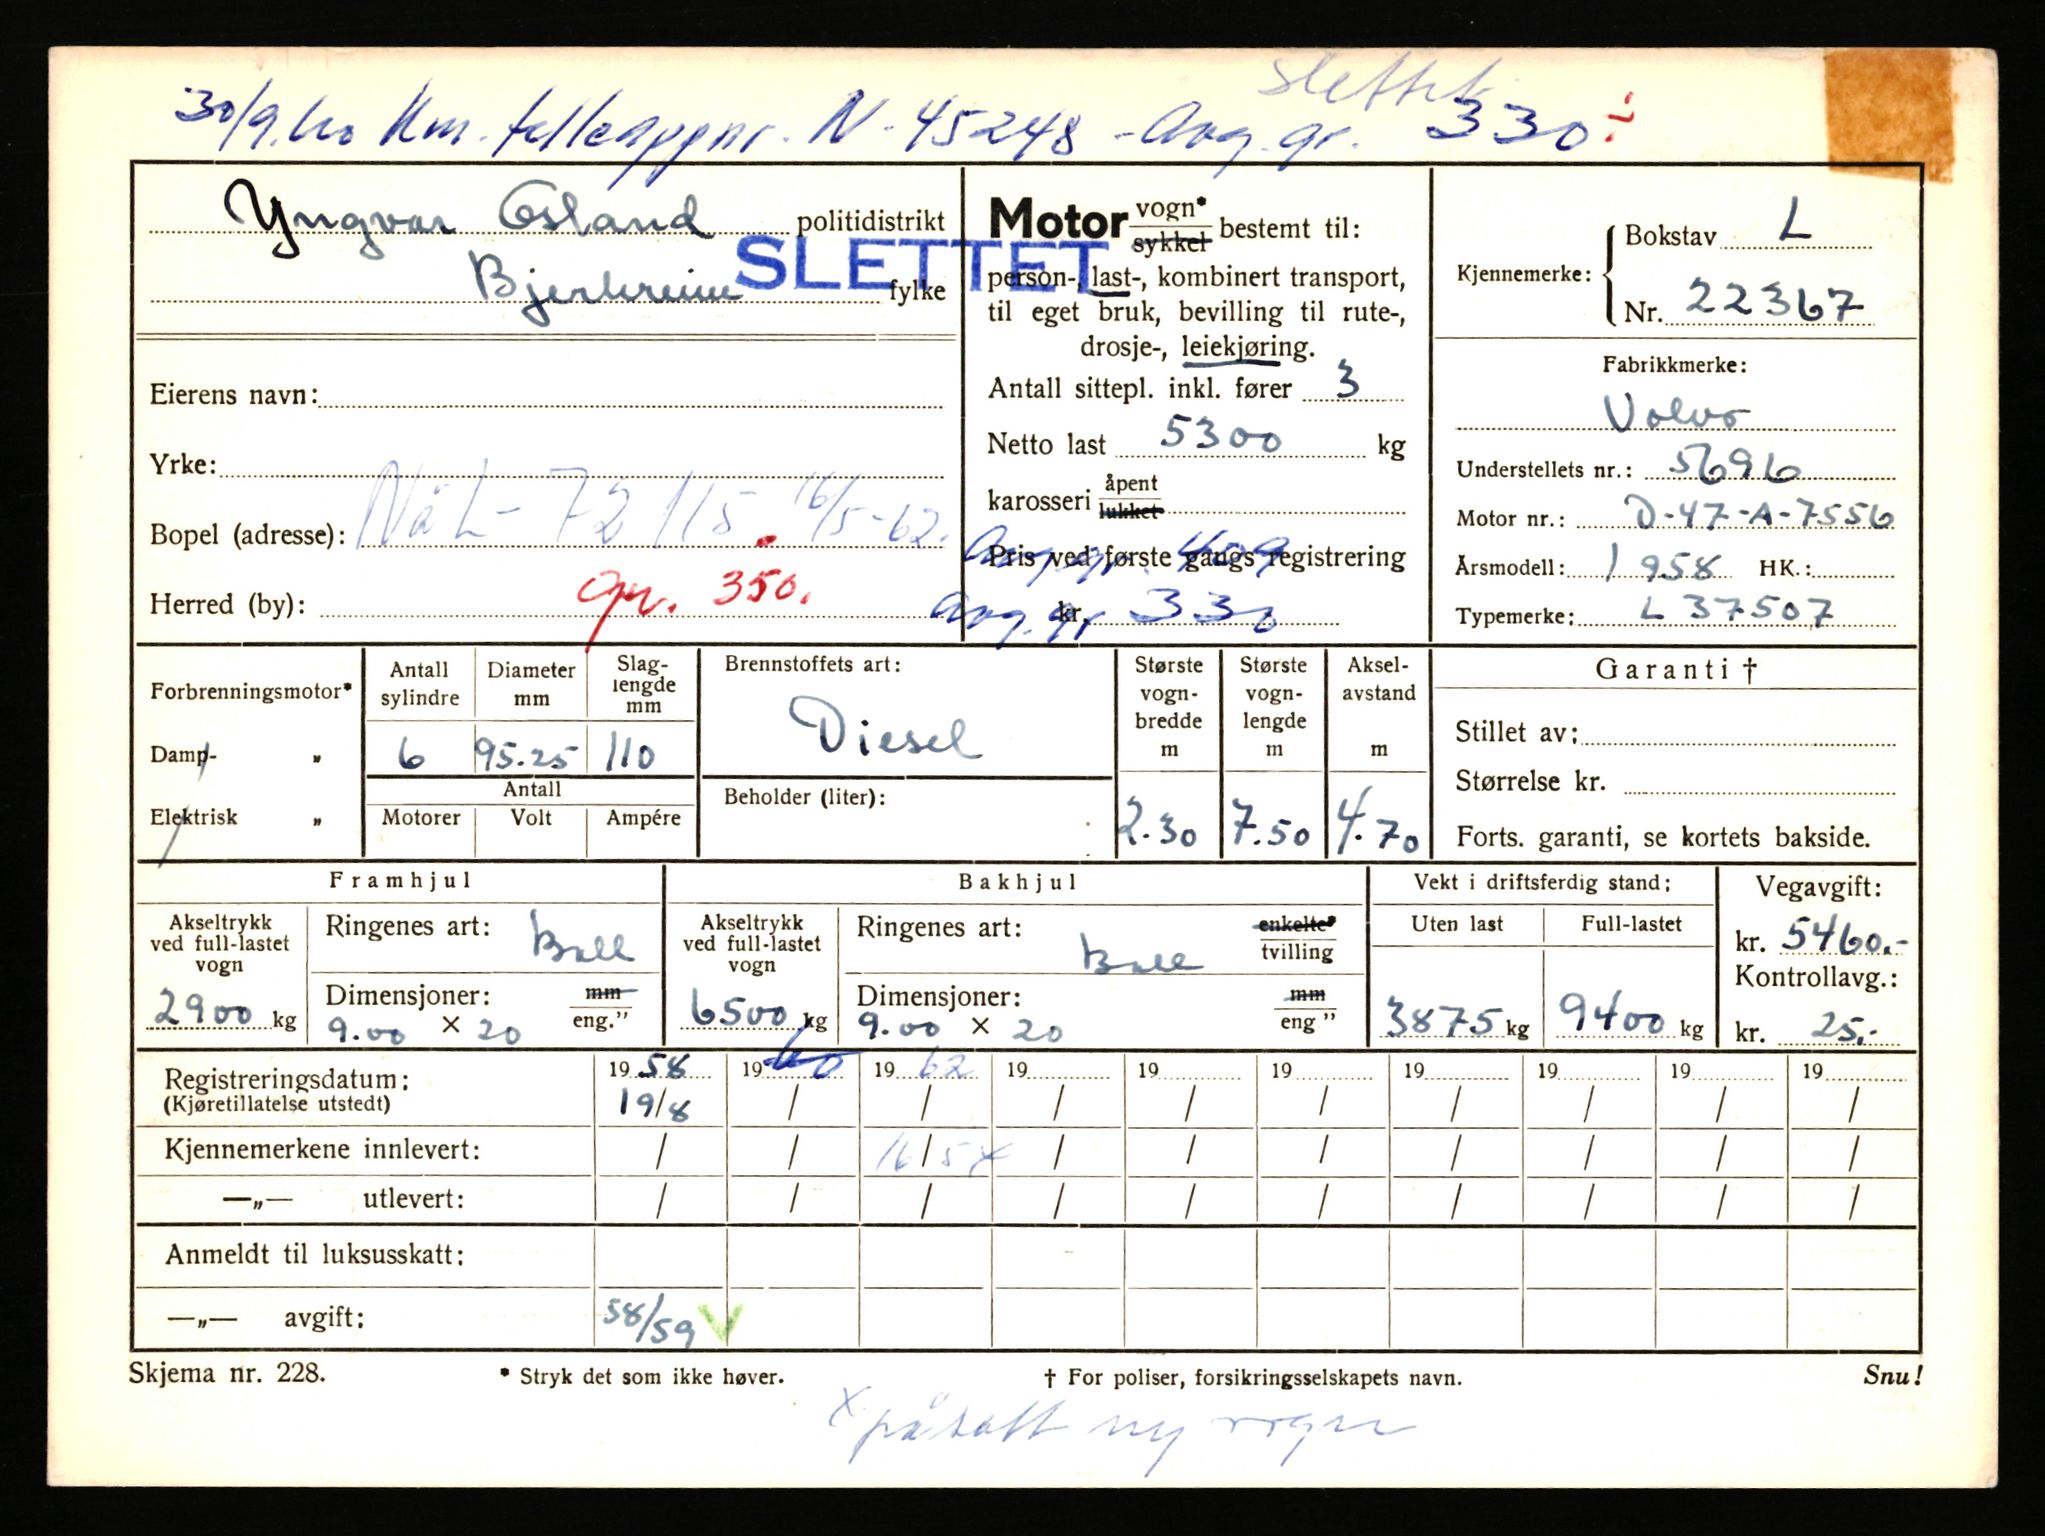 slettet
30/9.60 Km. telleappnr. N-45248 - Avg. gr. 330
Yngvar Osland politidistrikt
Bjerkreim fylke
SLETTET
Eierens navn:
Yrke:
Bopel (adresse): Nå L-72115 16/5-62.
Herred (by): gr. 350.
Motor vogn* sykkel bestemt til:
person-, last-, kombinert transport,
til eget bruk, bevilling til rute-,
drosje-, leiekjøring.
Antall sittepl. inkl. fører 3
Netto last 5300 kg
karosseri åpent lukket
Pris ved første gangs registrering
Avg. gr. 409
kr.
Avg. gr 330
Kjennemerke: Bokstav L
Nr. 22367
Fabrikkmerke:
Volvo
Understellets nr.: 5696
Motor nr.: D-47-A-7556
Årsmodell: 1958 HK.:
Typemerke: L 37507
Forbrenningsmotor*
Damp- „
Elektrisk „
Antall sylindre
6
Diameter mm
95.25
Slag-
lengde
mm
110
Antall
Motorer Volt Ampére
Brennstoffets art:
Diesel
Beholder (liter):
Største
vogn-
bredde
m
2.30
Største
vogn-
lengde
m
7.50
Aksel-
avstand
m
4.70
Garanti †
Stillet av:
Størrelse kr.
Forts. garanti, se kortets bakside.
Framhjul
Akseltrykk
ved full-lastet
vogn
2900 kg
Ringenes art: Ball
Dimensjoner: mm eng.”
9.00 × 20
Bakhjul
Akseltrykk
ved full-lastet
vogn
6500 kg
Ringenes art: Ball enkelte* tvilling
Dimensjoner: mm eng ”
9.00 × 20
Vekt i driftsferdig stand:
Uten last Full-lastet
3875 kg 9400 kg
Vegavgift:
kr. 5460.-
Kontrollavg.:
kr. 25.-
Registreringsdatum: 1958 1960 1962 19 19 19 19 19 19 19
(Kjøretillatelse utstedt) 19/8 / / / / / / / / /
Kjennemerkene innlevert: / / 16/5 x / / / / / / /
—„— utlevert: / / / / / / / / / /
Anmeldt til luksusskatt:
—„— avgift: 58/59 V
Skjema nr. 228. * Stryk det som ikke høver. † For poliser, forsikringsselskapets navn. Snu!
x påsatt ny vogn